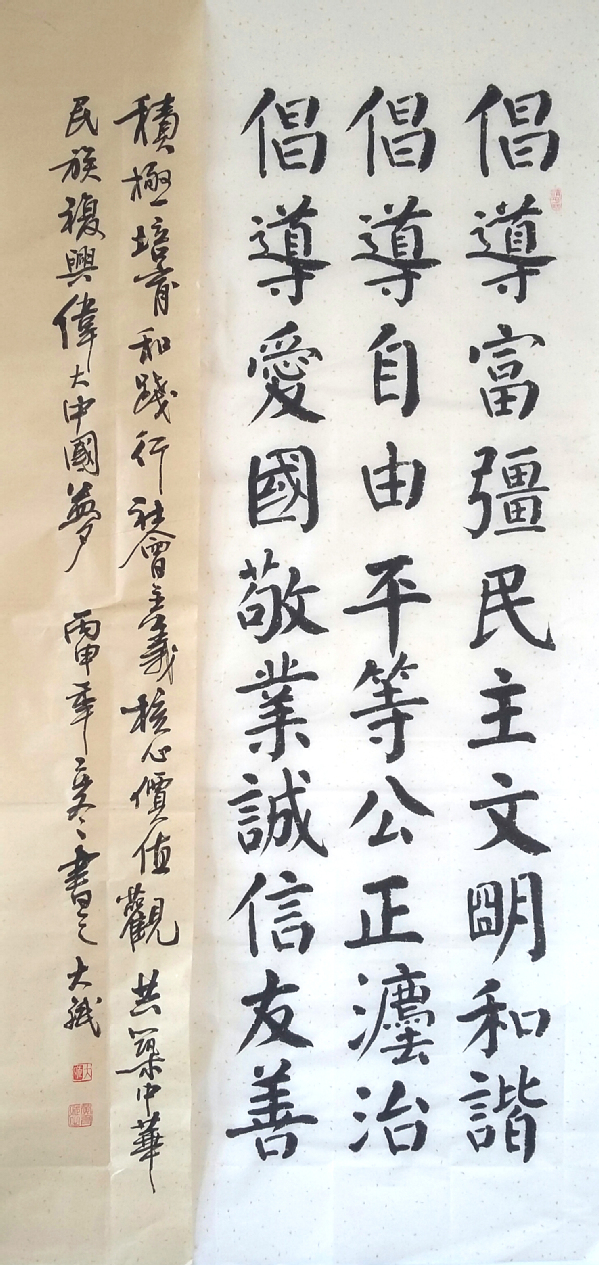 倡導富彊民主文明和諧
倡導自由平等公正灋治
倡導愛國敬業誠信友善
積極培育和踐行社會主義核心價值觀 共築中華
民族複興偉大中國夢 丙申年冬書之 大